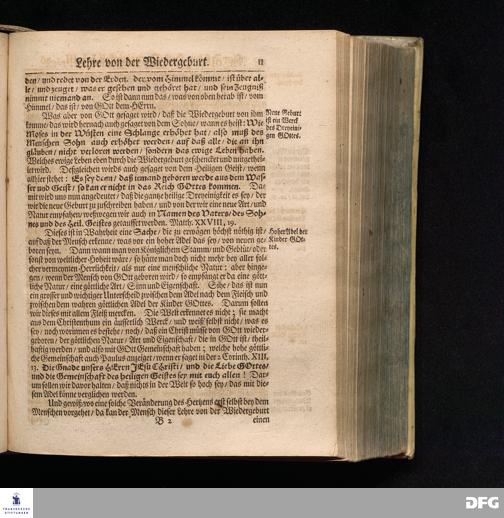 Lehre von der Wiedergeburt. 11
den/ und redet von der Erden. der vom Himmel kömmt/ ist über al-
le/ und zeuget/ was er gesehen und gehöret hat/ und sein Zeugniß
nimmt niemand an. So ist dann nun das/ was von oben herab ist/ vom
Himmel/ das ist/ von GOtt dem HErrn.
Was aber von GOtt gesaget wird/ daß die Wiedergeburt von ihm
komme/ das wird hernach auch gesaget von dem Sohne/ wann es heist: Wie
Moses in der Wüsten eine Schlange erhöhet hat/ also muß des
Menschen Sohn auch erhöhet werden/ auf daß alle/ die an ihn
gläuben/ nicht verloren werden/ sondern das ewige Leben haben.
Welches ewige Leben eben durch die Wiedergeburt geschencket und mitgethei-
let wird. Desgleichen wirds auch gesaget von dem Heiligen Geist/ wenn
allhier stehet: Es sey denn/ daß iemand geboren werde aus dem Was-
ser und Geist/ so kan er nicht in das Reich GOttes kommen. Da-
mit wird uns nun angedeutet/ daß die gantze heilige Dreyeinigkeit es sey/ der
wir die neue Geburt zu zuschreiben haben/ und von der wir eine neue Art/ und
Natur empfahen/ weswegen wir auch in Namen des Vaters/ des Soh-
nes und des Heil. Geistes getauffet werden. Matth. XXVIII, 19.
Neue Geburt
ist ein Werck
des Dreyeini-
gen GOttes.
Dieses ist in Wahrheit eine Sache/ die zu erwägen höchst nöthig ist/
auf daß der Mensch erkenne/ was vor ein hoher Adel das sey/ von neuen ge-
boren seyn. Dann wann man von Königlichem Stamm/ und Geblüt/ oder
sonst von weltlicher Hoheit wäre/ so hätte man doch nicht mehr bey aller sol-
cher vermeynten Herrlichkeit/ als nur eine menschliche Natur; aber hinge-
gen/ wenn der Mensch von GOtt geboren wird/ so empfängt er da eine gött-
liche Natur/ eine göttliche Art/ Sinn und Eigenschafft. Sihe/ das ist nun
ein grosser und wichtiger Unterscheid zwischen dem Adel nach dem Fleisch und
zwischen dem wahren göttlichen Adel der Kinder GOttes. Darum sollen
wir dieses mit allem Fleiß mercken. Die Welt erkennet es nicht; sie macht
aus dem Christenthum ein äusserlich Werck/ und weiß selbst nicht/ was es
sey/ noch worinnen es bestehe/ noch/ daß ein Christ müsse von GOtt wieder-
geboren/ der göttlichen Natur/ Art und Eigenschafft/ die in GOtt ist/ theil-
hafftig werden/ und also mit GOtt Gemeinschafft haben; welche hohe göttli-
che Gemeinschafft auch Paulus anzeiget/ wenn er saget in der 2 Corinth. XIII,
13. Die Gnade unsers HErrn JEsu Christi/ und die Liebe GOttes/
und die Gemeinschafft des heiligen Geistes sey mit euch allen! Dar-
um sollen wir davor halten/ daß nichts in der Welt so hoch sey/ das mit die-
sem Adel könne verglichen werden.
Hoher Adel der
Kinder GOt-
tes.
Und gewiß/ wo eine solche Veränderung des Hertzens erst selbst bey dem
Menschen vorgehet/ da kan der Mensch dieser Lehre von der Wiedergeburt
B 2 einen
FRANCKESCHE
STIFTUNGEN
DFG